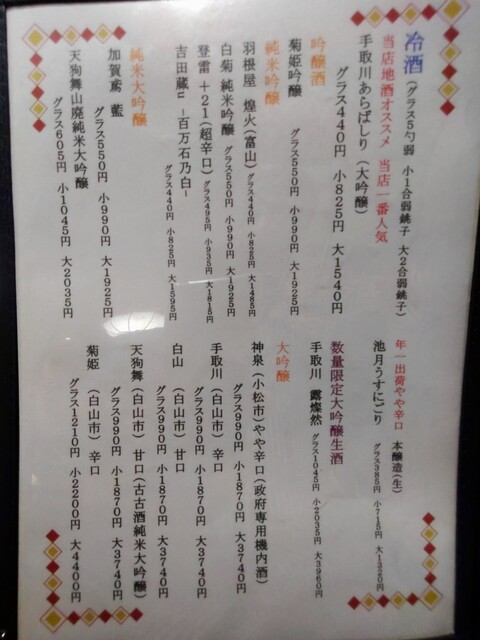 冷酒（グラス5勺弱 小1合弱銚子 大2合弱銚子）
当店地酒オススメ 当店一番人気
手取川あらばしり（大吟醸）
グラス440円 小825円 大1540円
吟醸酒
菊姫吟醸
グラス550円 小990円 大1925円
純米吟醸
羽根屋 煌火（富山）グラス440円 小825円 大1485円
白菊 純米吟醸 グラス550円 小990円 大1925円
登雷 +21（超辛口）グラス495円 小935円 大1815円
吉田蔵u －百万石乃白－
グラス440円 小825円 大1595円
純米大吟醸
加賀鳶 藍
グラス550円 小990円 大1925円
天狗舞山廃純米大吟醸
グラス605円 小1045円 大2035円
年一出荷やや辛口 本醸造（生）
池月うすにごり グラス385円 小715円 大1320円
数量限定大吟醸生酒
手取川 露燦然 グラス1045円 小2035円 大3960円
大吟醸
神泉（小松市）やや辛口（政府専用機内酒）
グラス990円 小1870円 大3740円
手取川（白山市）辛口
グラス990円 小1870円 大3740円
白山 （白山市）甘口
グラス990円 小1870円 大3740円
天狗舞（白山市）甘口（古古酒純米大吟醸）
グラス990円 小1870円 大3740円
菊姫 （白山市）辛口
グラス1210円 小2200円 大4400円